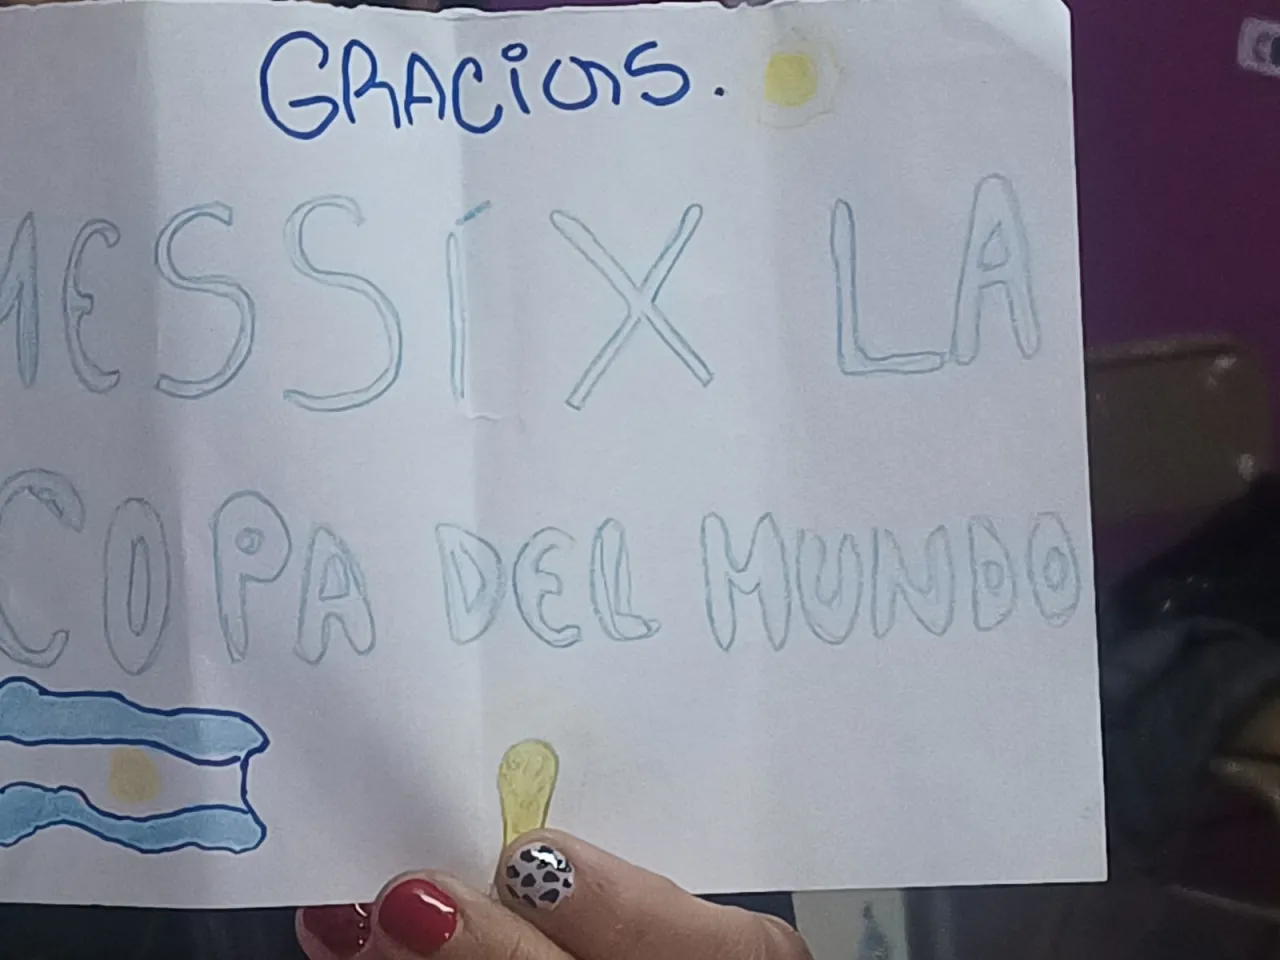 GRACias.
MESSÍ X LA
COPA DEL MUNDO